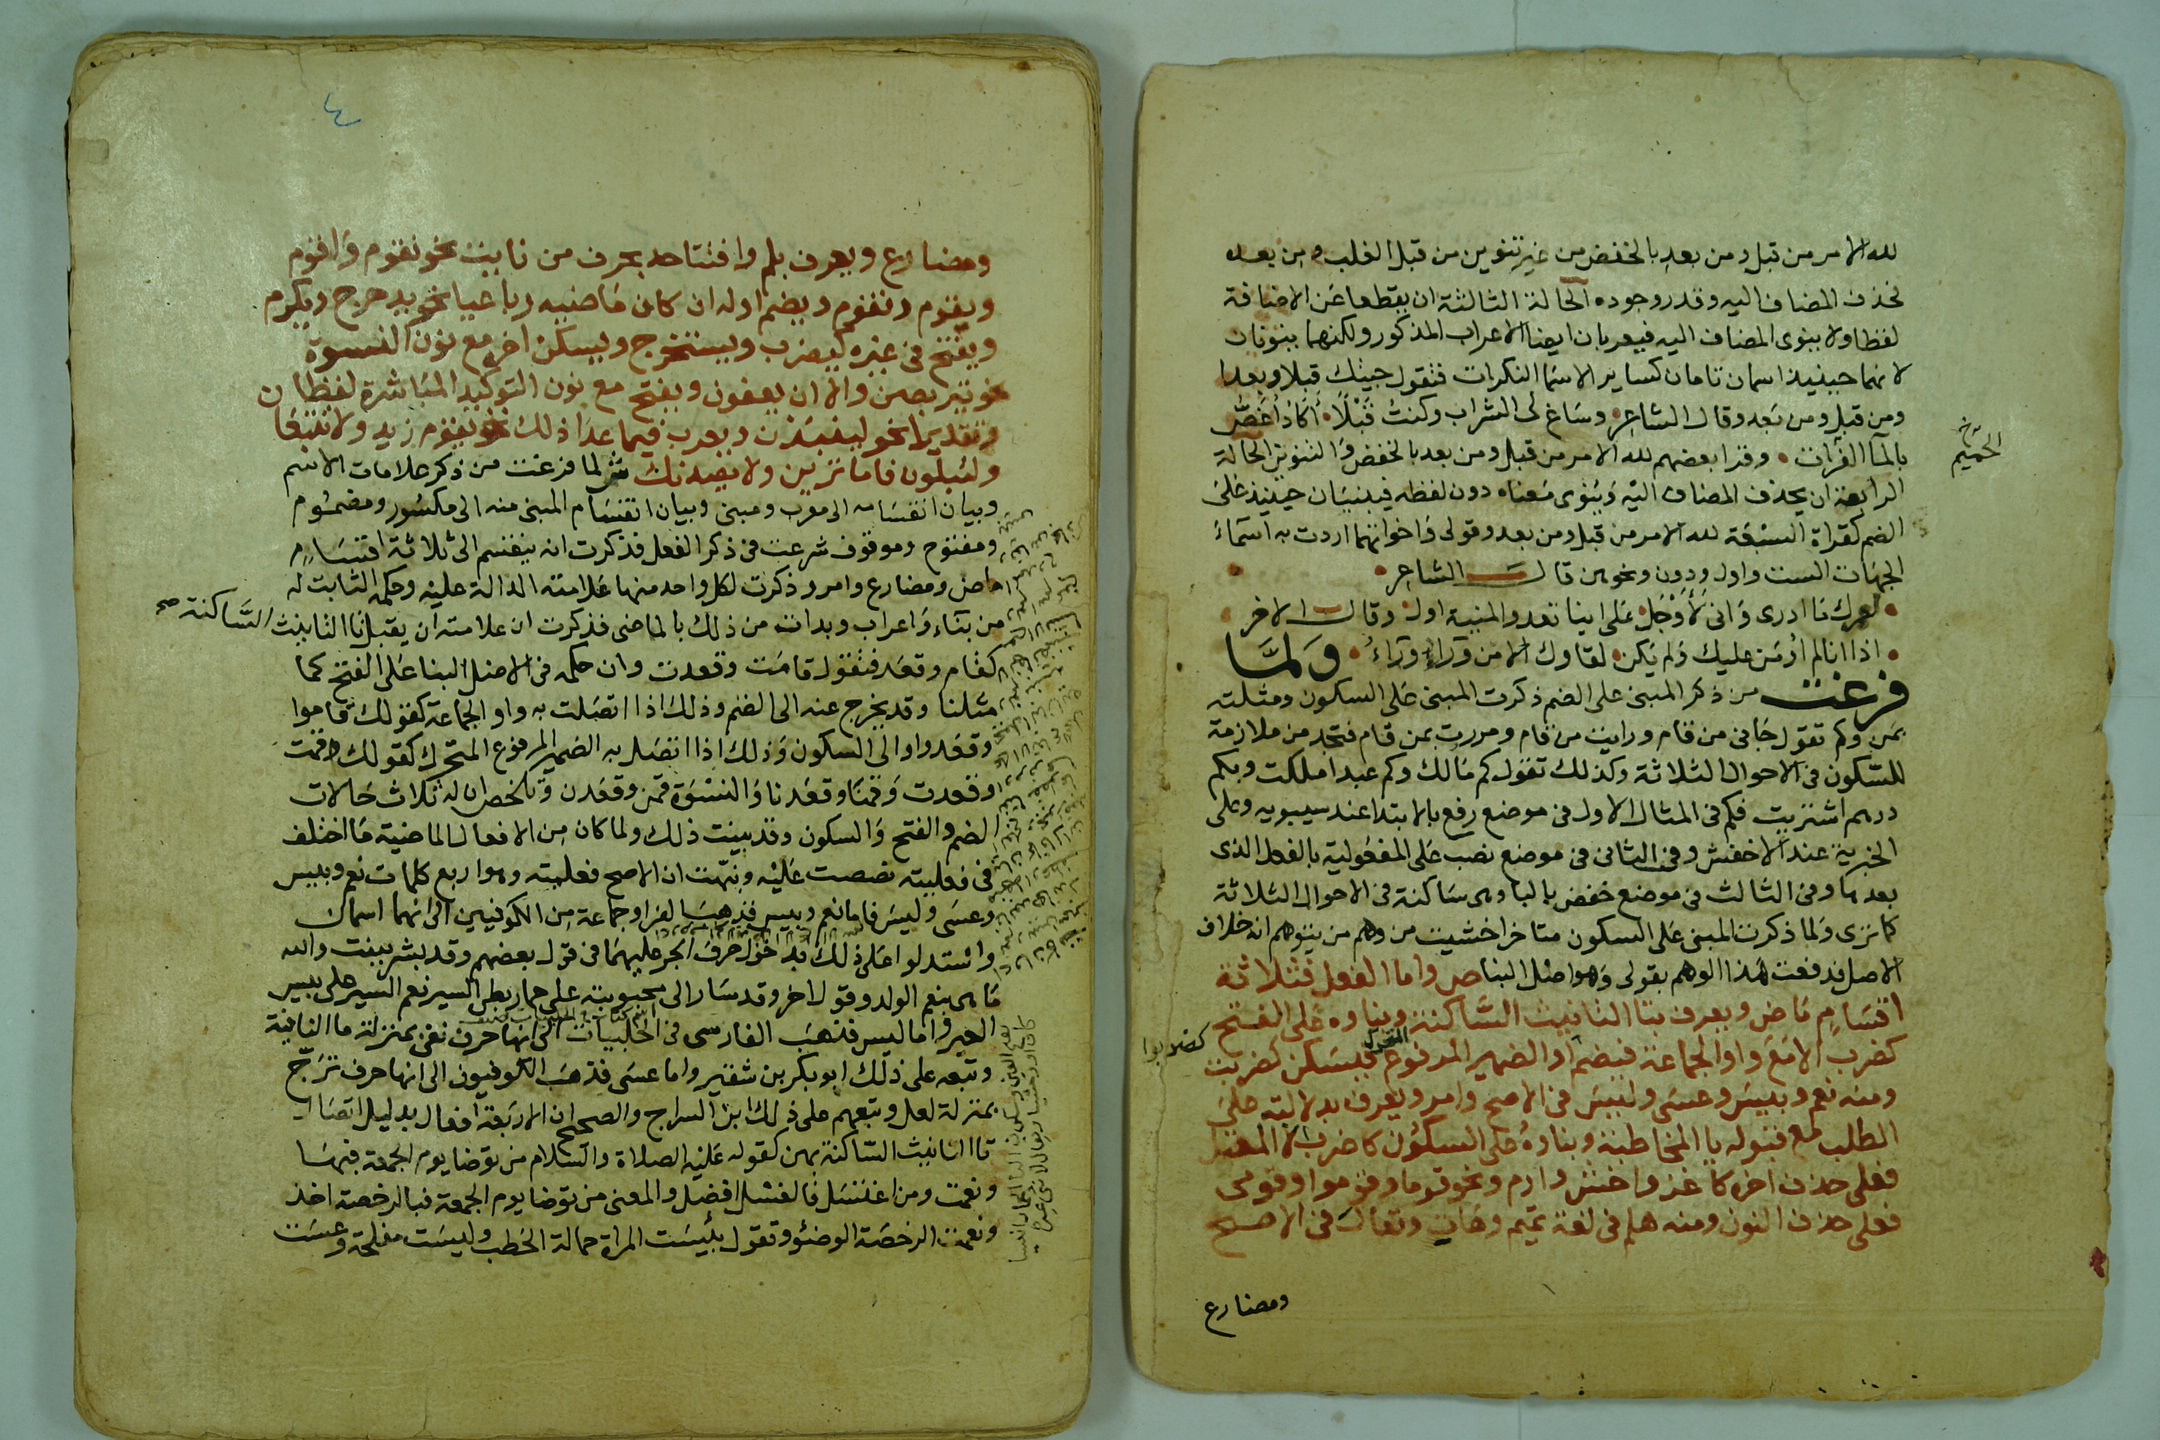 لله الامر من قبل ومن بعد بالخفض من غير تنوين من قبل الغلب ومن بعده
فحذف المضاف اليه وقدر وجوده الحالة الثالثة ان يقطعا عن الاضافة
لفظا ولا ينوى المضاف اليه فيعربان ايضا الاعراب المذكور ولكنهما ينونان
لانهما حينيذ اسمان تامان كساير الاسما النكرات فتقول جيتك قبلا وبعدا
ومن قبل ومن بعد وقال الشاعر وساغ لى الشراب وكنت قبلا اكاد اغص
بالما الفرات وقرا بعضهم لله الامر من قبل ومن بعد بالخفض والتنوين الحالة
الحميم
الرابعة ان يحذف المضاف اليه وينوى معناه دون لفظه فيبنيان حينيذ على
الضم كقراة السبعة لله الامر من قبل ومن بعد وقولى واخواتهما اردت به اسماء
الجهات الست واول ودون ونحوهن قال الشاعر
لعمرك ما ادرى وانى لاوجل على اينا تعدو المنية اول وقال الاخر
اذا انا لم اومن عليك ولم يكن لقاوك الا من وراء وراء ولما
فرغت من ذكر المبنى على الضم ذكرت المبنى على السكون ومثلته
بمن وكم تقول جانى من قام ورايت من قام ومررت بمن قام فتجد من ملازمة
للسكون فى الاحوال الثلاثة وكذلك تقول كم مالك وكم عبدا ملكت وبكم
درهم اشتريت فكم فى المثال الاول فى موضع رفع بالابتدا عند سيبويه وعلى
الخبرية عند الاخفش وفى الثانى فى موضع نصب على المفعولية بالفعل الذى
بعدها وفى الثالث فى موضع خفض بالبا وهى ساكنة فى الاحوال الثلاثة
كما ترى ولما ذكرت المبنى على السكون متاخرا خشيت من وهم من يتوهم انه خلاف
الاصل فدفعت هذا الوهم بقولى وهو اصل البنا ص واما الفعل فثلاثة
اقسام ماض ويعرف بتا التانيث الساكنة وبناوه على الفتح
كضرب الا مع واو الجماعة فيضم او الضمير المرفوع المتحرك فيسكن كضربت
كضربوا
ومنه نعم وبيس وعسى وليس فى الاصح وامر ويعرف بدلالته على
الطلب مع قبوله يا المخاطبة وبناوه على السكون كاضرب الا المعتل
فعلى حذف اخره كاغز واخش وارم ونحو قوما وقوموا وقومى
فعلى حذف النون ومنه هلم فى لغة تميم وهات وتعال فى الاصح
ومضارع
٤
ومضارع ويعرف بلم وافتتاحه بحرف من نايت نحو نقوم واقوم
ويقوم وتقوم ويضم اوله ان كان ماضيه رباعيا نحو يدحرج ويكرم
ويفتح فى غيره كيضرب ويستخرج ويسكن اخره مع نون النسوة
نحو يتربصن والا ان يعفون ويفتح مع نون التوكيد المباشرة لفظا ن
وتقديرا نحو لينبذن ويعرب فيما عدا ذلك نحو يقوم زيد ولا تتبعان
ولتبلون فاما ترين ولا يصدنك ش لما فرغت من ذكر علامات الاسم
وبيان انقسامه الى معرب ومبنى وبيان انقسام المبنى منه الى مكسور ومضموم
ومفتوح وموقوف شرعت فى ذكر الفعل فذكرت انه ينقسم الى ثلاثة اقسام
ماض ومضارع وامر وذكرت لكل واحد منها علامته الدالة عليه وحكمه الثابت له
من بناء واعراب وبدات من ذلك بالماضى فذكرت ان علامته ان يقبل تا التانيث الساكنة صح
كقام وقعد فتقول قامت وقعدت وان حكمه فى الاصل البنا على الفتح كما
مثلنا وقد يخرج عنه الى الضم وذلك اذا اتصلت به واو الجماعة كقولك قاموا
وقعدوا والى السكون وذلك اذا اتصل به الضمير المرفوع المتحرك كقولك قمت
وقعدت وقمنا وقعدنا والنسوة قمن وقعدن وتلخص ان له ثلاث حالات
الضم والفتح والسكون وقد بينت ذلك ولما كان من الافعال الماضية ما اختلف
فى فعليته نصصت عليه ونبهت ان الاصح فعليته وهو اربع كلمات نعم وبيس
وعسى وليس فاما نعم وبيس فذهب الفرا وجماعة من الكوفيين الى انهما اسمان
واستدلوا على ذلك بدخول حرف الجر عليهما فى قول بعضهم وقد بشر ببنت والله
ما هى بنعم الولد وقول اخر وقد سار الى محبوبته على حمار بطى السير نعم السير على بيس
العير واما ليس فذهب الفارسى فى الحلبيات الى انها حرف نفى بمنزلة ما النافية
وتبعه على ذلك ابو بكر بن شقير واما عسى فذهب الكوفيون الى انها حرف ترج
بمنزلة لعل وتبعهم على ذلك ابن السراج والصحيح ان الاربعة افعال بدليل اتصال
تا التانيث الساكنة بهن كقوله عليه الصلاة والسلام من توضا يوم الجمعة فبها
ونعمت ومن اغتسل فالغسل افضل والمعنى من توضا يوم الجمعة فبالرخصة اخذ
ونعمت الرخصة الوضوء وتقول بئيست المراة حمالة الحطب وليست مفلحة وعست